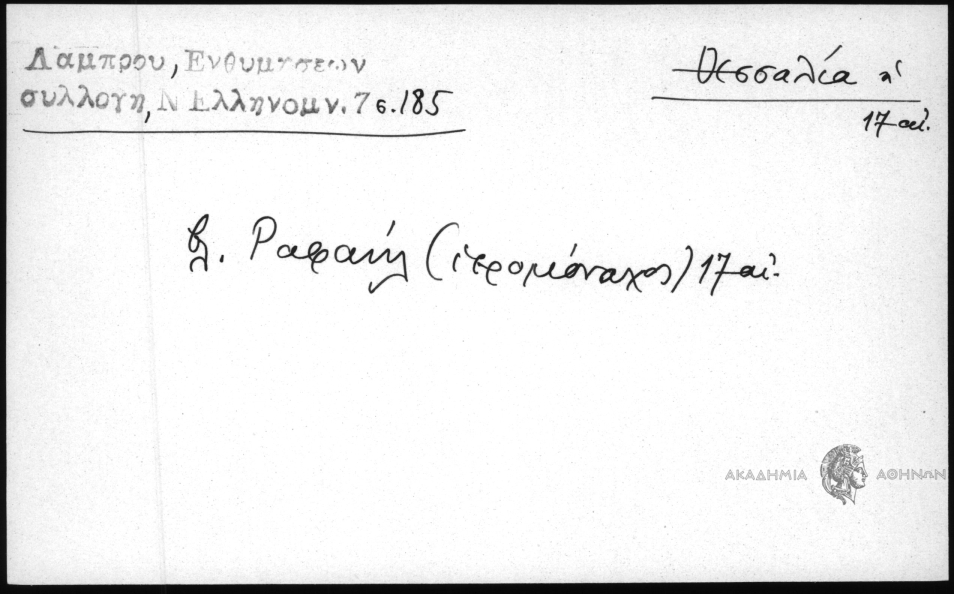 Λαμπρου, Ενθυμησεων
συλλογη, Ν Ελληνομν. 7 σ. 185
Θεσσαλία
17 αἰ.
βλ. Ραφαήλ (ἱερομόναχος) 17 αἰ.
ΑΚΑΔΗΜΙΑ ΑΘΗΝΩΝ